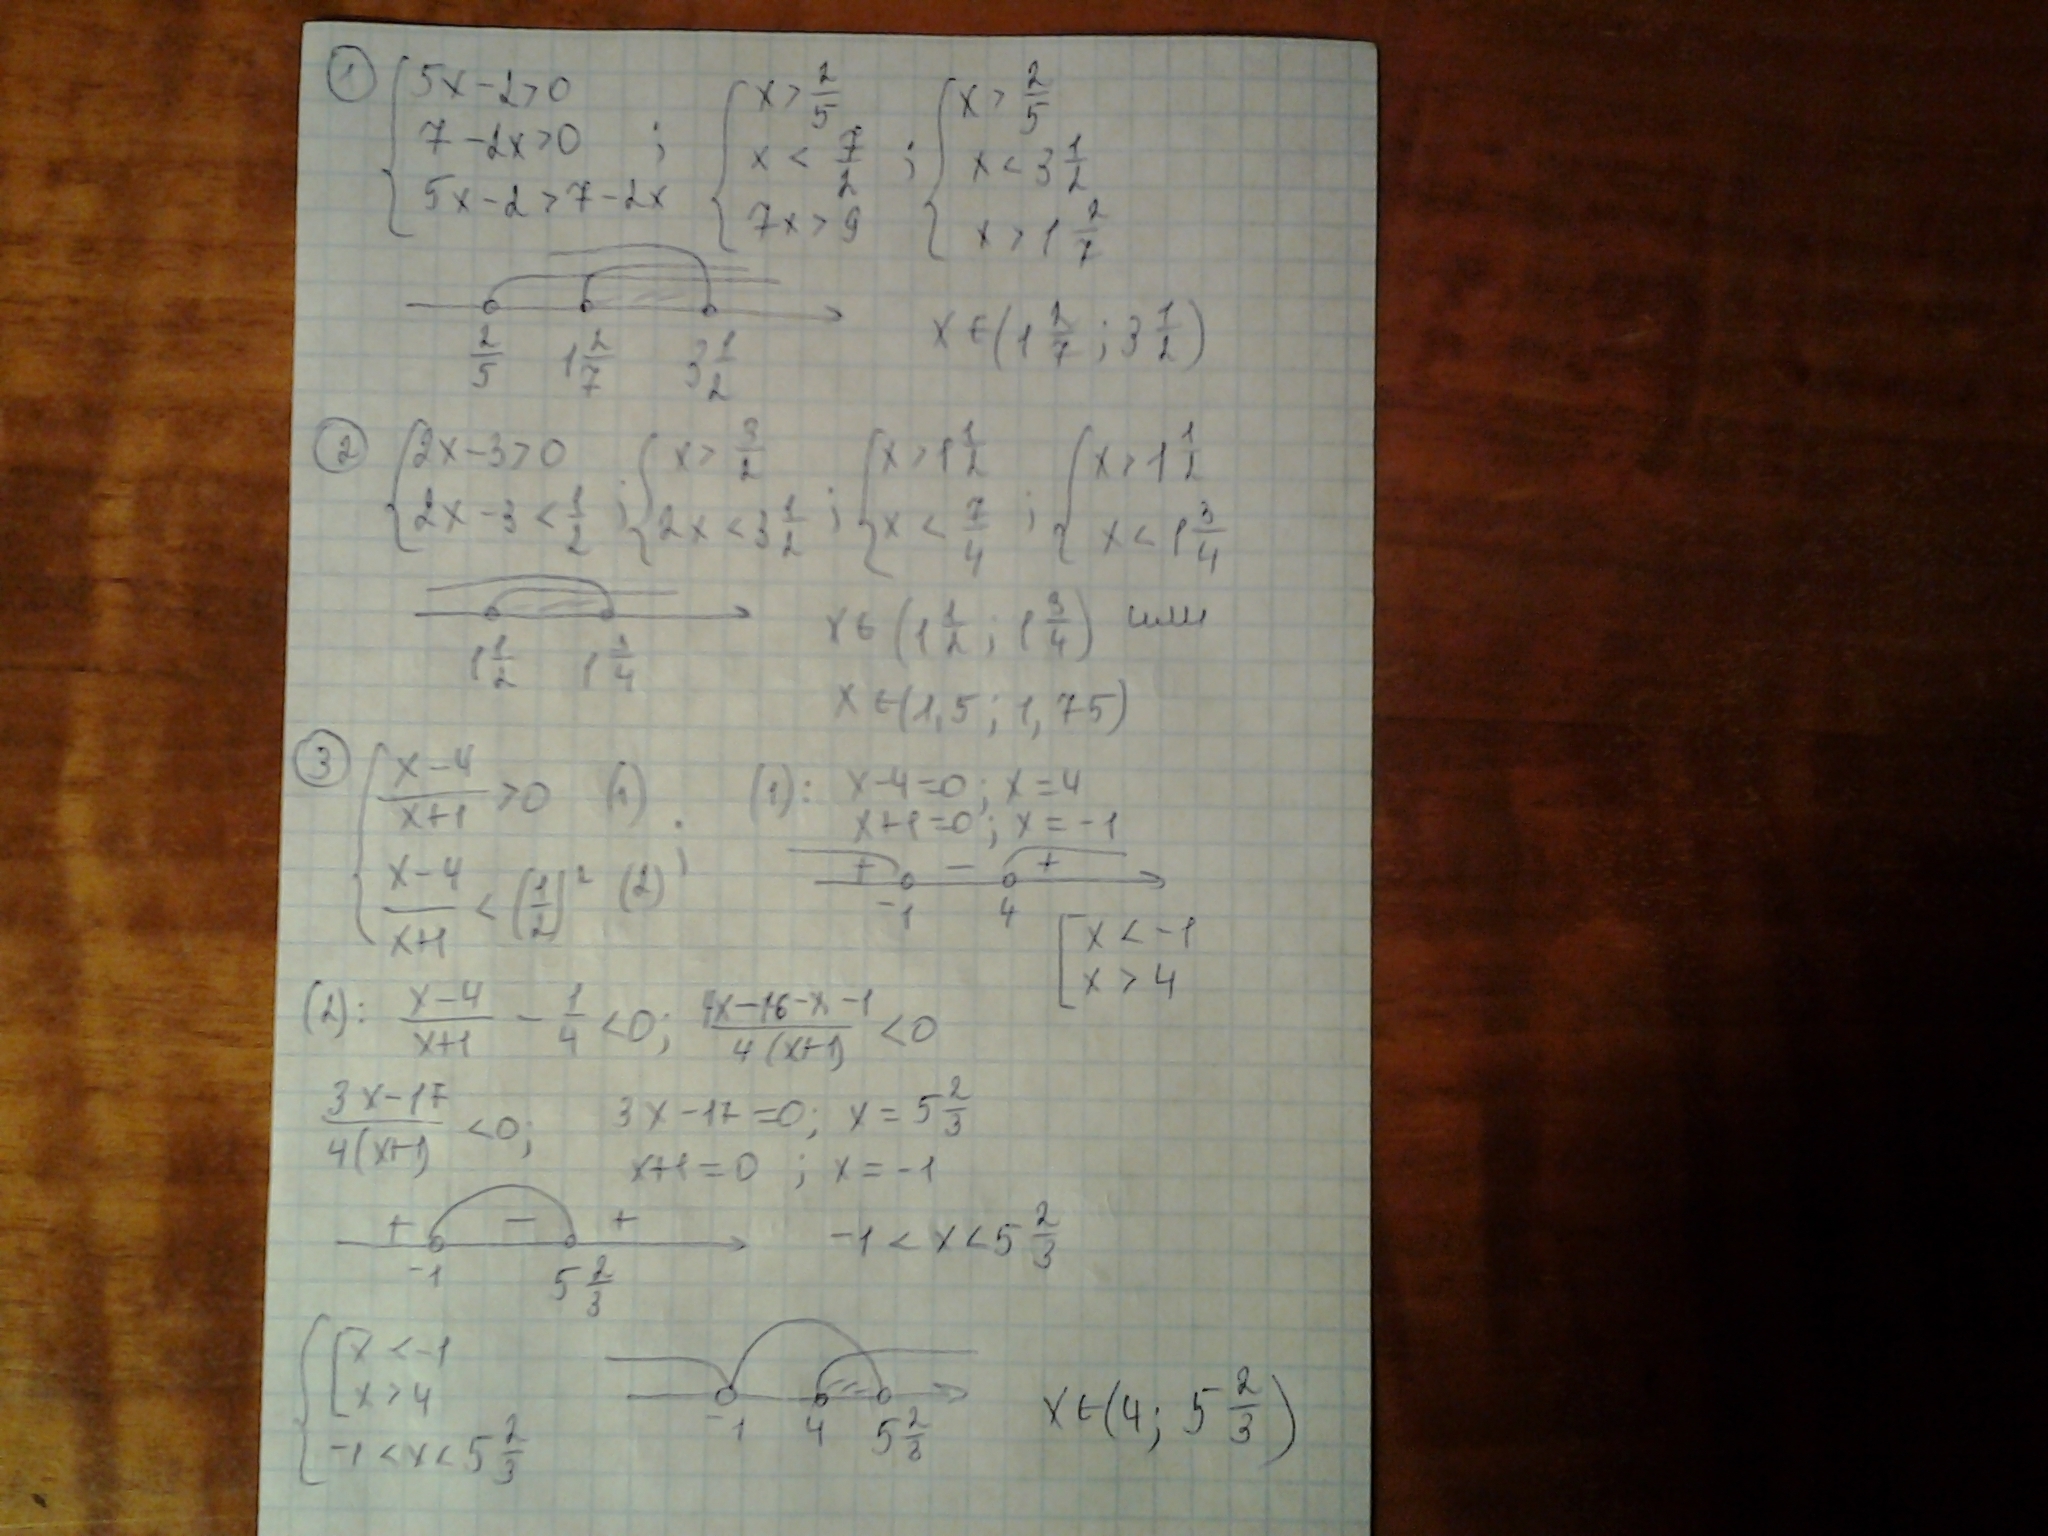 1 { 5x-2>0 ; { x > 2/5 ; { x > 2/5
7-2x>0 x < 7/2 x < 3 1/2
5x-2>7-2x 7x>9 x > 1 2/7
2/5 1 2/7 3 1/2 x∈(1 2/7 ; 3 1/2)
2 { 2x-3>0 ; { x > 3/2 ; { x > 1 1/2 ; { x > 1 1/2
2x-3 < 1/2 2x < 3 1/2 x < 7/4 x < 1 3/4
1 1/2 1 3/4 x∈(1 1/2 ; 1 3/4) или
x∈(1,5 ; 1,75)
3 { (x-4)/(x+1) > 0 (1) ; (1): x-4=0; x=4
x+1=0; x=-1
(x-4)/(x+1) < (1/2)² (2)
+ - +
-1 4
[ x < -1
x > 4
(2): (x-4)/(x+1) - 1/4 < 0; (4x-16-x-1)/(4(x+1)) < 0
(3x-17)/(4(x+1)) < 0; 3x-17=0; x = 5 2/3
x+1=0 ; x=-1
+ - +
-1 5 2/3 -1 < x < 5 2/3
{ [ x < -1
x > 4
-1 < x < 5 2/3
-1 4 5 2/3 x∈(4; 5 2/3)